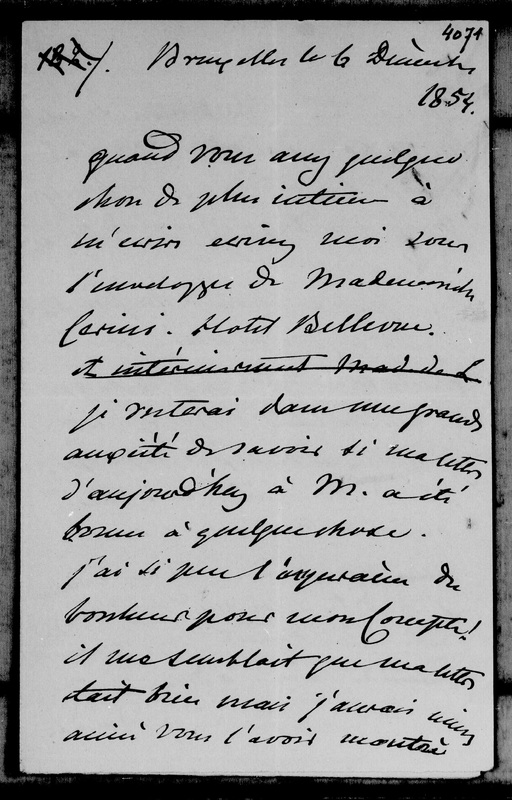 4074
Bruxelles le 6 Décembre
1854.
quand vous avez quelque
chose de plus intime à
m'écrire écrivez moi sous
l'enveloppe de Mademoiselle
Carini. Hotel Bellevue.
et intérieurement Mad. de L
je resterai dans une grande
anxiété de savoir si ma lettre
d'aujourd'huy à M. a été
bonne à quelque chose.
j'ai si peu l'
bonheur pour mon Compte!
il me semblait que ma lettre
était bien mais j'aurais mieux
aimé vous l'avoir montrée